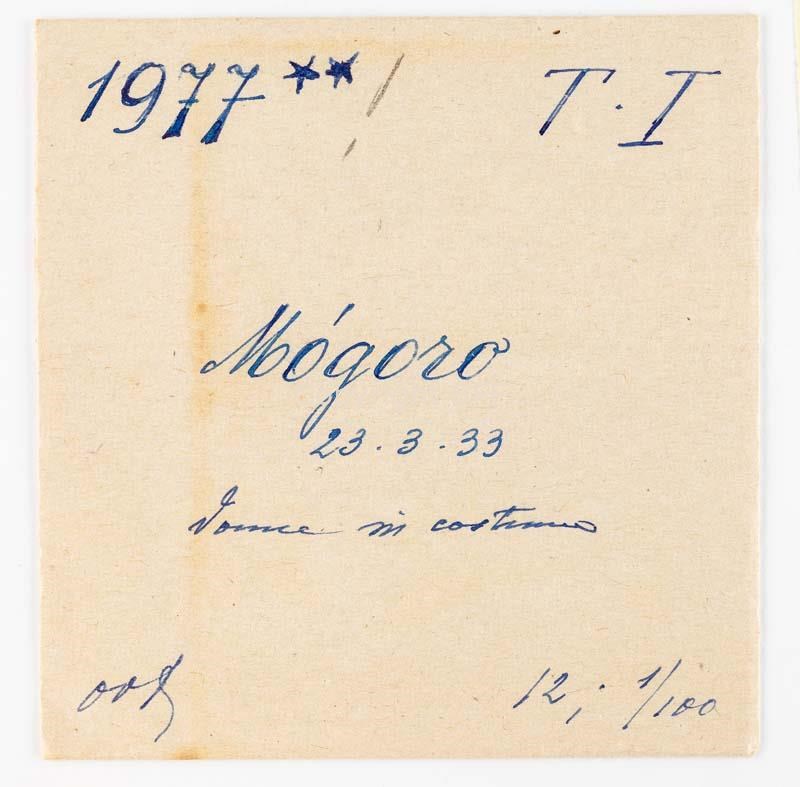 1977 ** T. I
Mógoro
23.3.33
Donne in costume
12; 1/100